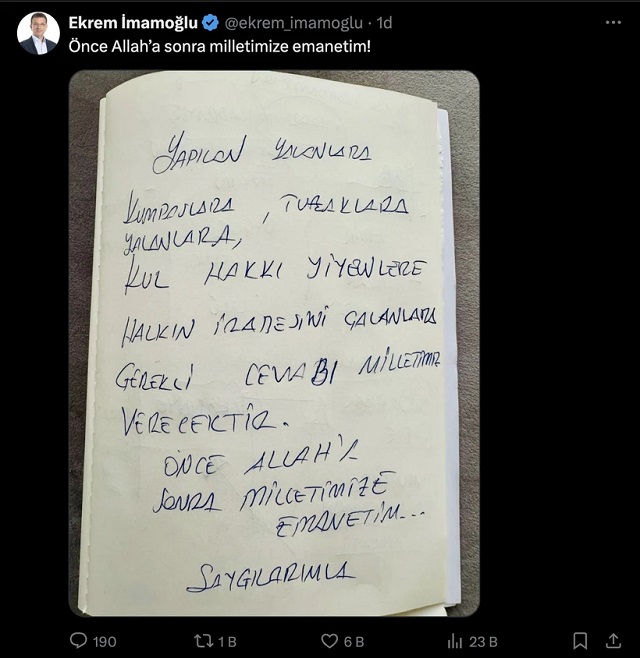 Ekrem İmamoğlu @ekrem_imamoglu · 1d
Önce Allah'a sonra milletimize emanetim!
YAPILAN YALANLARA
KUMPASLARA, TUZAKLARA
YALANLARA,
KUL HAKKI YİYENLERE
HALKIN İRADESİNİ ÇALANLARA
GEREKLİ CEVABI MİLLETİMİZ
VERECEKTİR.
ÖNCE ALLAH'A
SONRA MİLLETİMİZE
EMANETİM...
SAYGILARIMLA
190 1 B 6 B 23 B